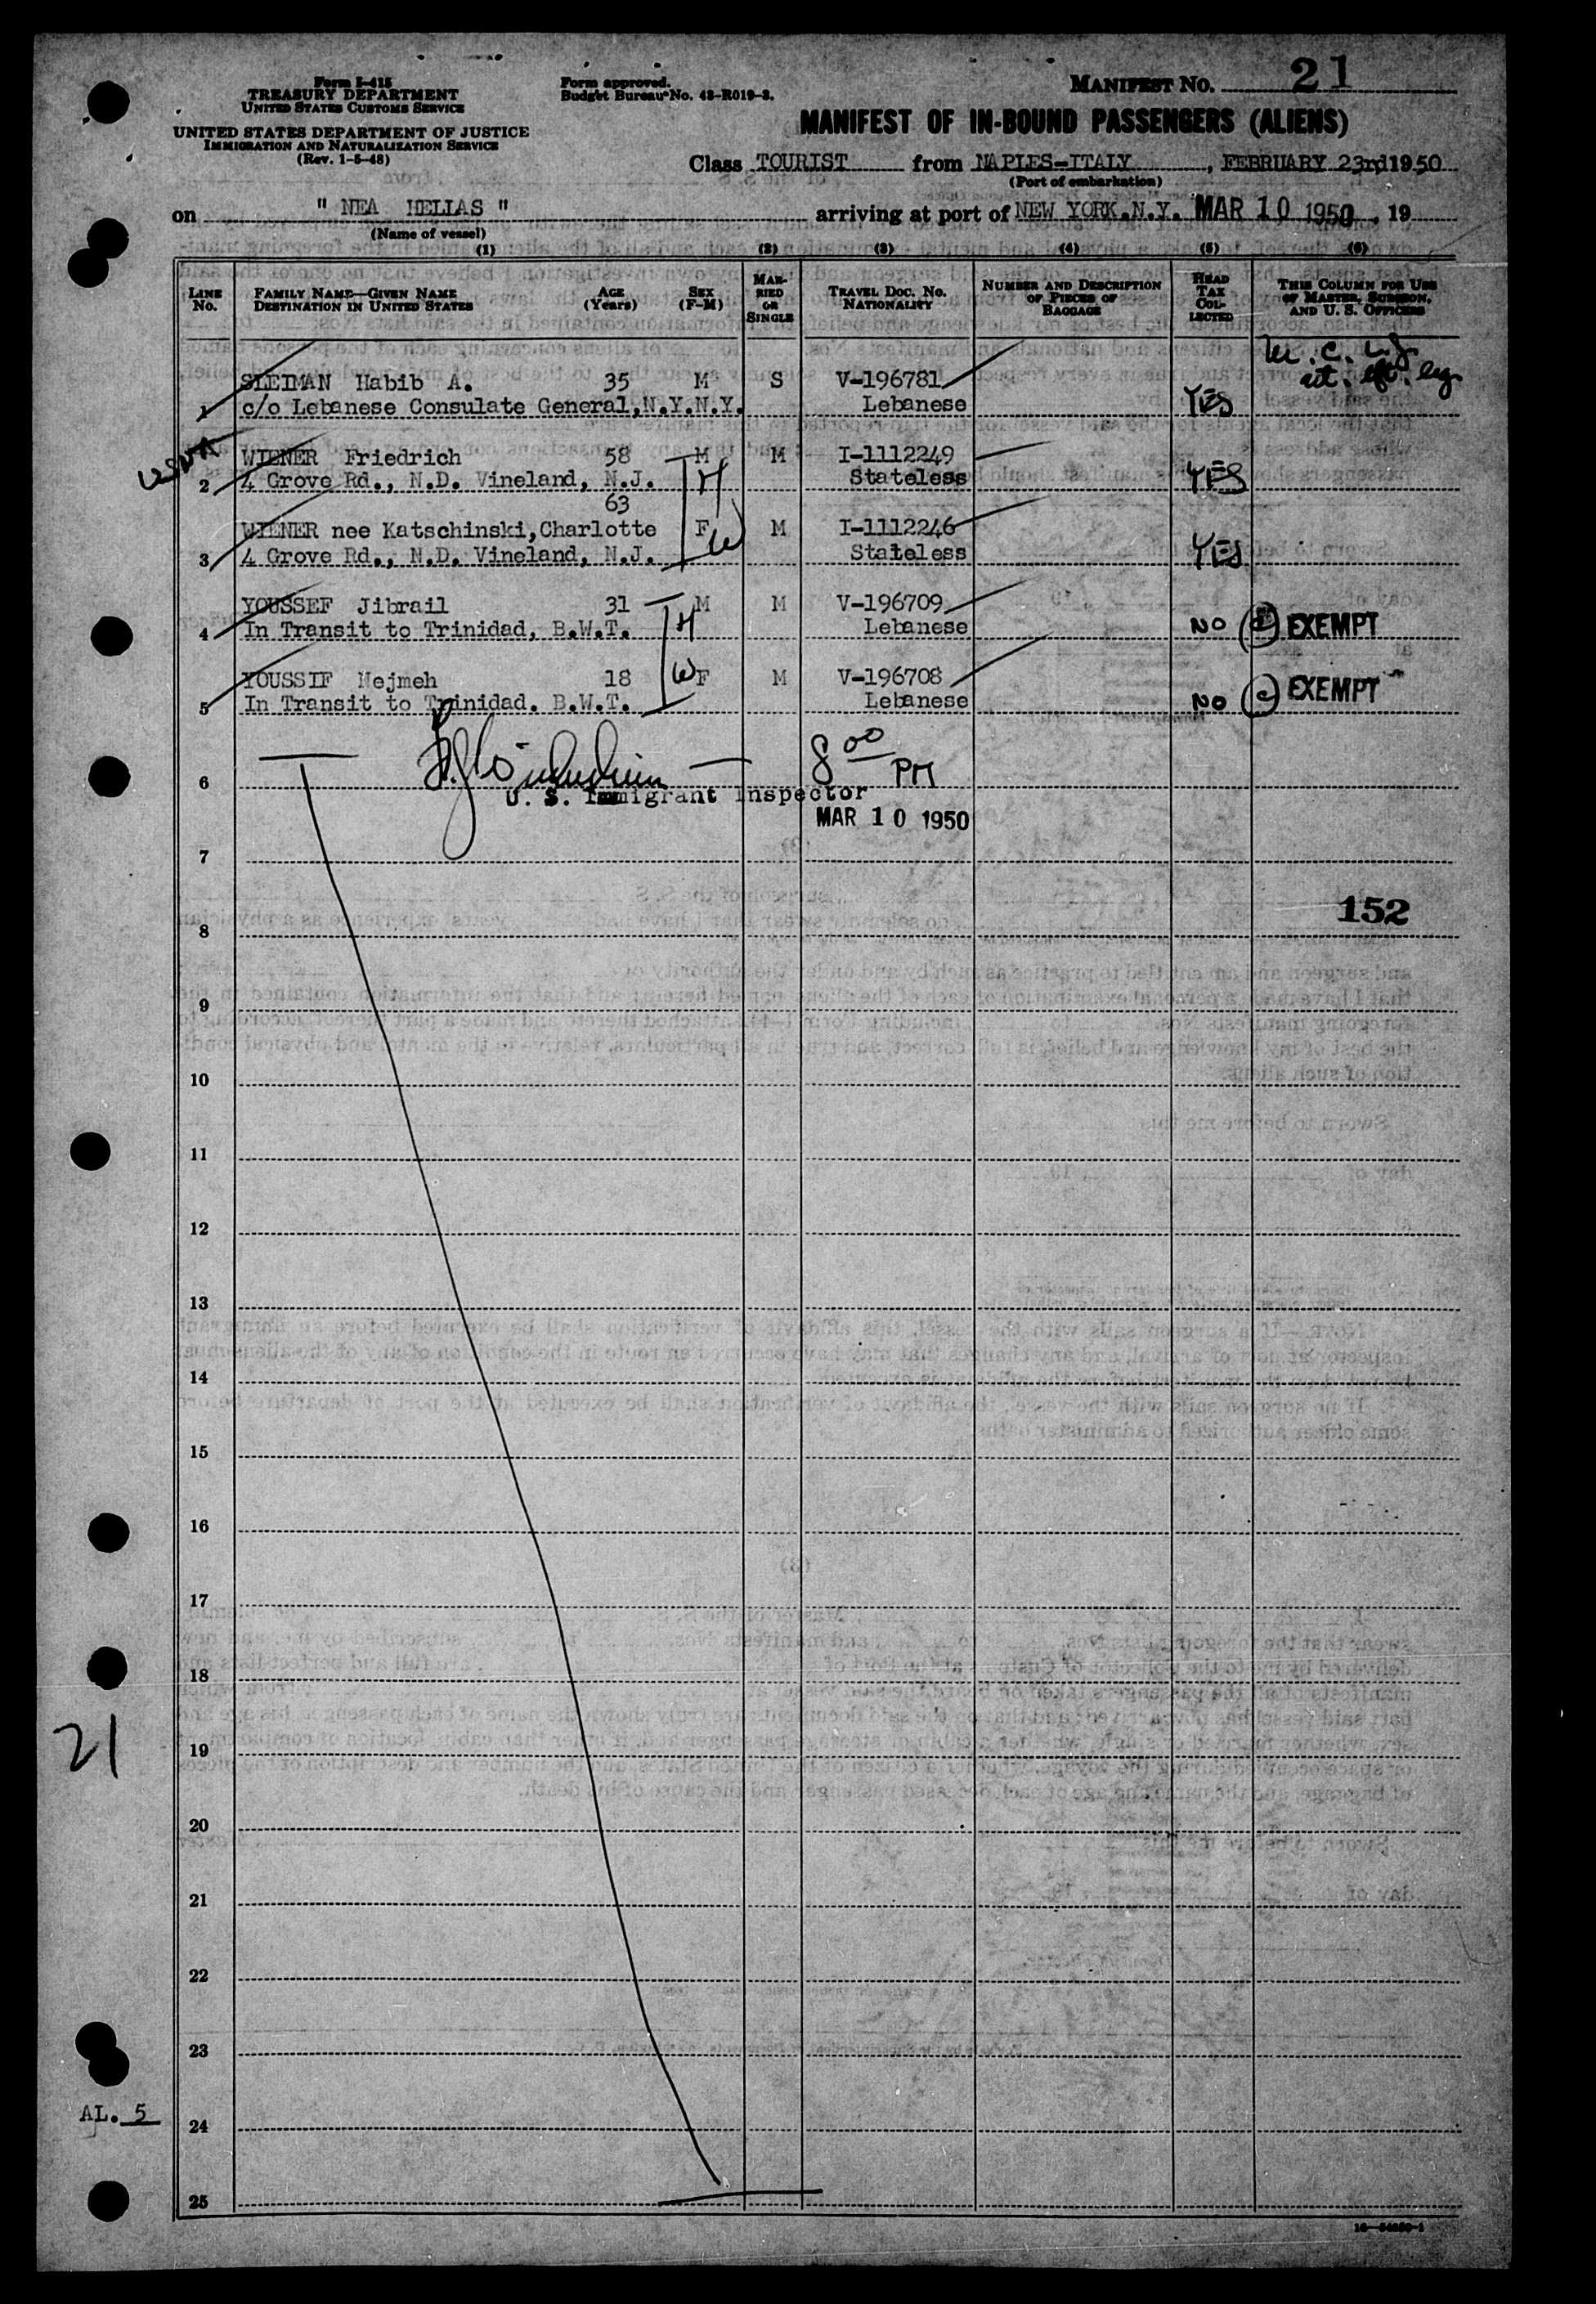 Form I-415
TREASURY DEPARTMENT
UNITED STATES CUSTOMS SERVICE
UNITED STATES DEPARTMENT OF JUSTICE
IMMIGRATION AND NATURALIZATION SERVICE
(Rev. 1-5-48)
Form approved.
Budget Bureau No. 43-R019-3.
MANIFEST NO. 21
MANIFEST OF IN-BOUND PASSENGERS (ALIENS)
Class TOURIST from NAPLES-ITALY, FEBRUARY 23rd 1950
(Port of embarkation)
on " NEA HELLAS " arriving at port of NEW YORK.N.Y. MAR 10 1950, 19
(Name of vessel)
(1) (2) (3) (4) (5) (6)
LINE NO. FAMILY NAME—GIVEN NAME DESTINATION IN UNITED STATES AGE (Years) SEX (F-M) MARRIED OR SINGLE TRAVEL DOC. NO. NATIONALITY NUMBER AND DESCRIPTION OF PIECES OF BAGGAGE HEAD TAX COLLECTED THIS COLUMN FOR USE OF MASTER, SURGEON, AND U. S. OFFICERS
SLEIMAN Habib A. 35 M S V-196781
1 c/o Lebanese Consulate General,N.Y.N.Y. Lebanese YES
WIENER Friedrich 58 M M I-1112249
2 4 Grove Rd., N.D. Vineland, N.J. H Stateless YES
63
WIENER nee Katschinski,Charlotte F W M I-1112246
3 4 Grove Rd., N.D. Vineland, N.J. Stateless YES
YOUSSEF Jibrail 31 M M V-196709
4 In Transit to Trinidad, B.W.T. H Lebanese NO EXEMPT
YOUSSIF Nejmeh 18 W F M V-196708
5 In Transit to Trinidad. B.W.T. Lebanese NO (c) EXEMPT
8 00 PM
6
U. S. Immigrant Inspector
MAR 10 1950
7
152
8
9
10
11
12
13
14
15
16
17
18
21
19
20
21
22
23
AL. 5
24
25